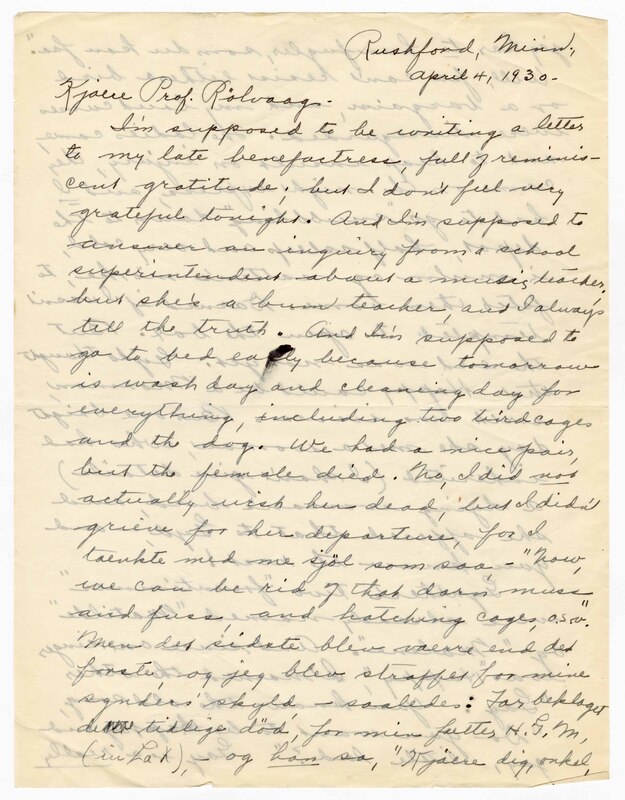 Rushford, Minn.,
April 4, 1930-
Kjaere Prof. Rölvaag-
I'm supposed to be writing a letter
to my late benefactress, full of reminis-
cent gratitude; but I don't feel very
grateful tonight. And I'm supposed to
answer an inquiry from a school
superintendent about a music teacher,
but she's a bum teacher, and I always
tell the truth. And I'm supposed to
go to bed early because tomorrow
is wash day and cleaning day for
everything, including two birdcages
and the dog. We had a nice pair,
but the female died. No, I did not
actually wish her dead, but I didn't
grieve for her departure, for I
taenkte med me sjöl som saa - "Now,
we can be rid of that darn muss
and fuss, and hatching cages, o.s.v."
Men det sidste blev vaerre end det
forste, og jeg blev straffet for mine
synders' skyld - saaledes: Far beklaget
den tidlige död, for min fetter H. G. M,
(in LaX), - og han sa, "Kjaere dig, onkel,